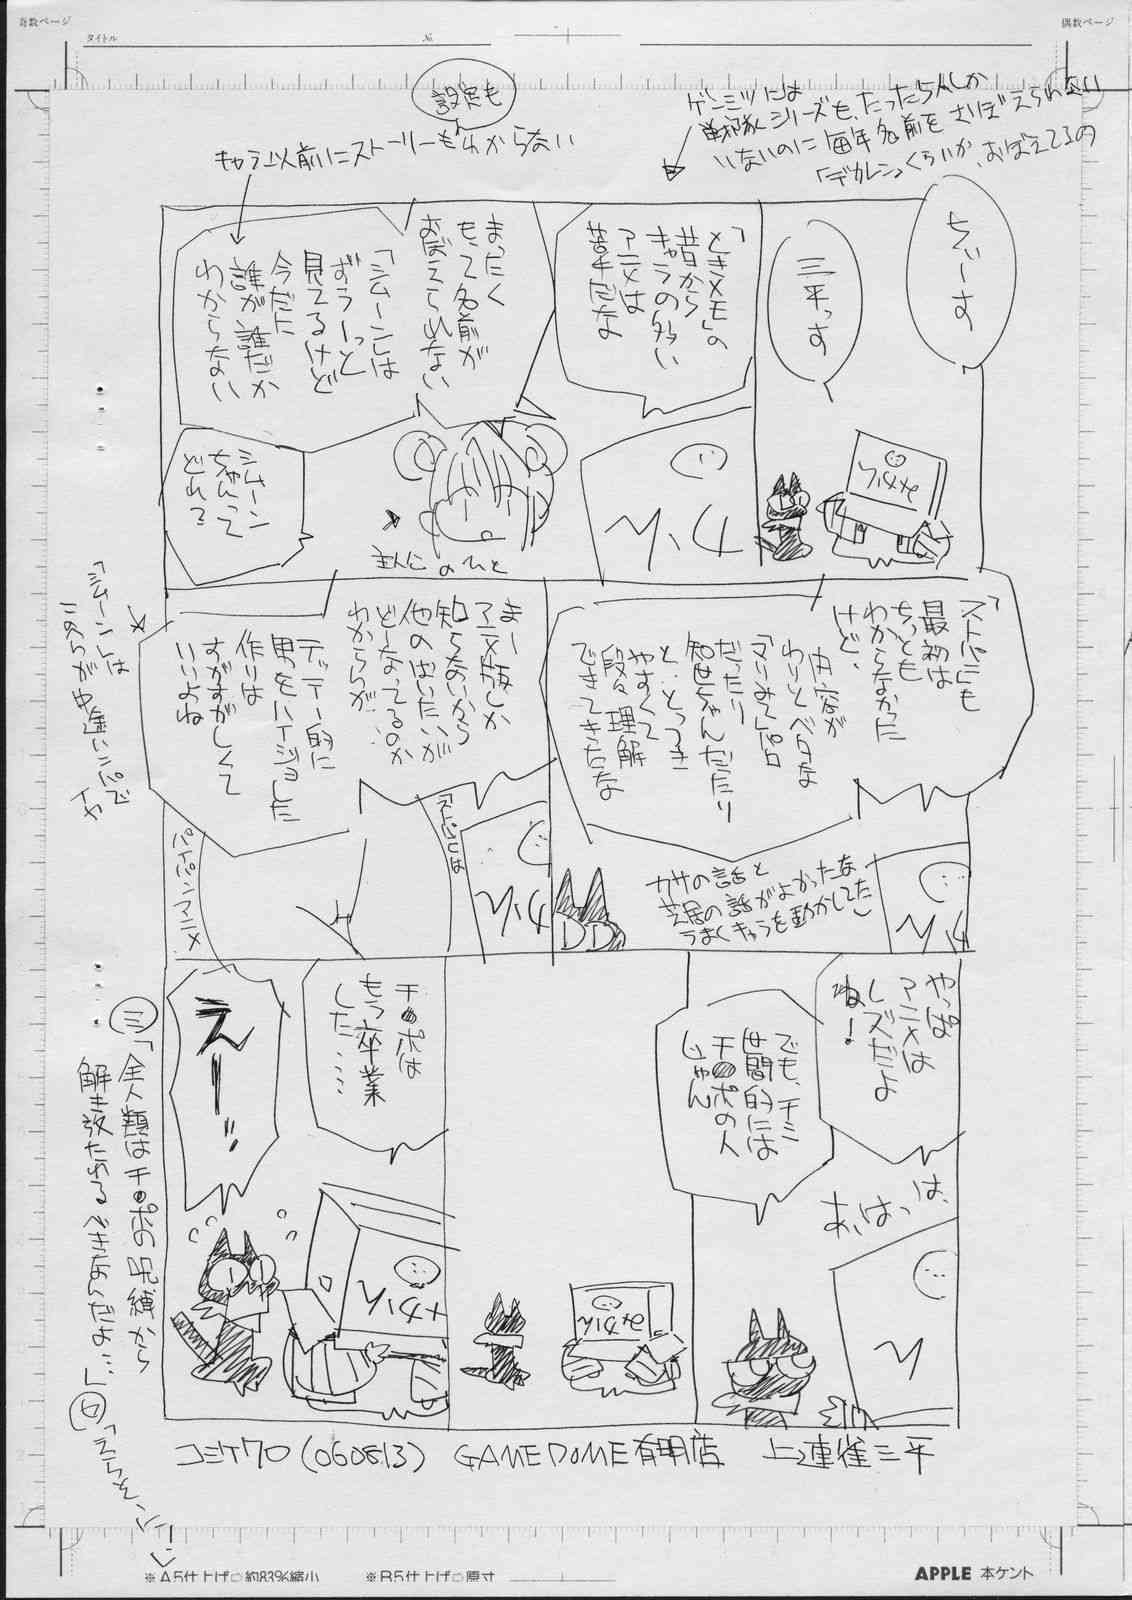 奇数ページ
偶数ページ
タイトル
№
設定も
キャラ以前にストーリーもわからない
ゲンミツには
戦隊シリーズも、たった5人しか
いないのに毎年名前をおぼえられない
「デカレン」くらいか、おぼえてるの
ちぃーす
三平っす
「ときメモ」の
昔から
キャラの多い
アニメは
苦手だな
まったく
もって名前が
おぼえられない
「シムーン」は
ずうーっと
見てるけど
今だに
誰が誰だか
わからない
シムーン
ちゃんって
どれ?
主人公のひと
みかん
「ストパニ」も
最初は
ちっとも
わからなかった
けど、
内容が
わりとベタな
「マリみて」パロ
だったり
知世ちゃんだったり
と、とっつき
やすくて
段々理解
できてきたな
カサの話と
芝居の話がよかったな
うまくキャラを動かしてた
まーアニメ版しか
知らないから
他のはいたいが
どーなってるのか
わからんが…
テッテー的に
男をハイジョした
作りは
すがすがしくて
いいよね
「シムーン」は
ここらが中途ハンパで
イヤ
「ストパニ」は
パイパンアニメ
やっぱ
アニメは
レズだよ
ね!
あ、はっ、は、
でも、チミ
世間的には
チ●ポの人
じゃん
みかん
チ●ポは
もう卒業
した……
えーっ!!
三「全人類はチ●ポの呪縛から
解き放たれるべきなんだよ…」
コミケ70(060813) GAMEDOME有明店 上連雀三平
※A5仕上げ○約83%縮小
※B5仕上げ○原寸
APPLE 本ケント